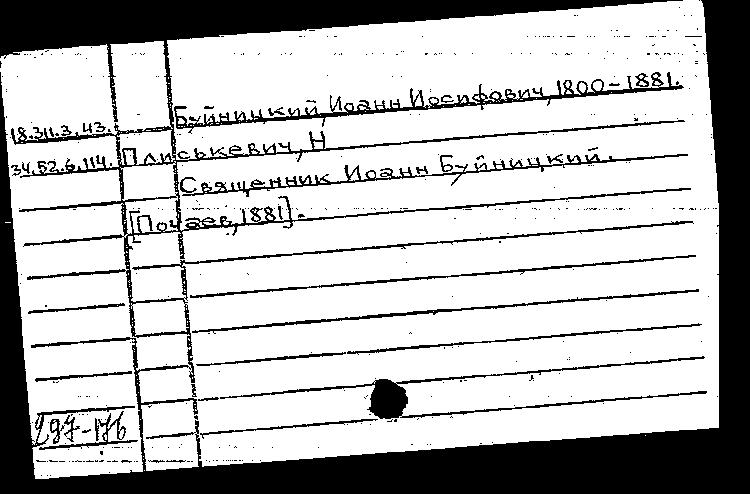 Буйницкий, Иоанн Иосифович, 1800-1881.
18.311.3.43.
34.52.6.114. Плиськевич, Н
Священник Иоанн Буйницкий.
[Почаев, 1881].
297-176